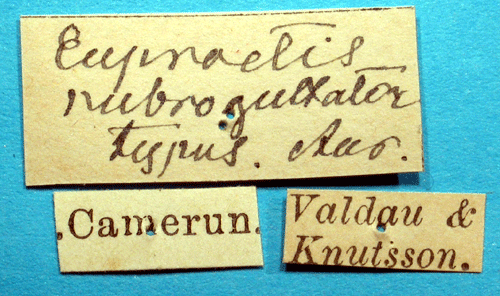 Euproctis
rubroguttator
typus. Aur.
.Camerun.
Valdau &
Knutsson.